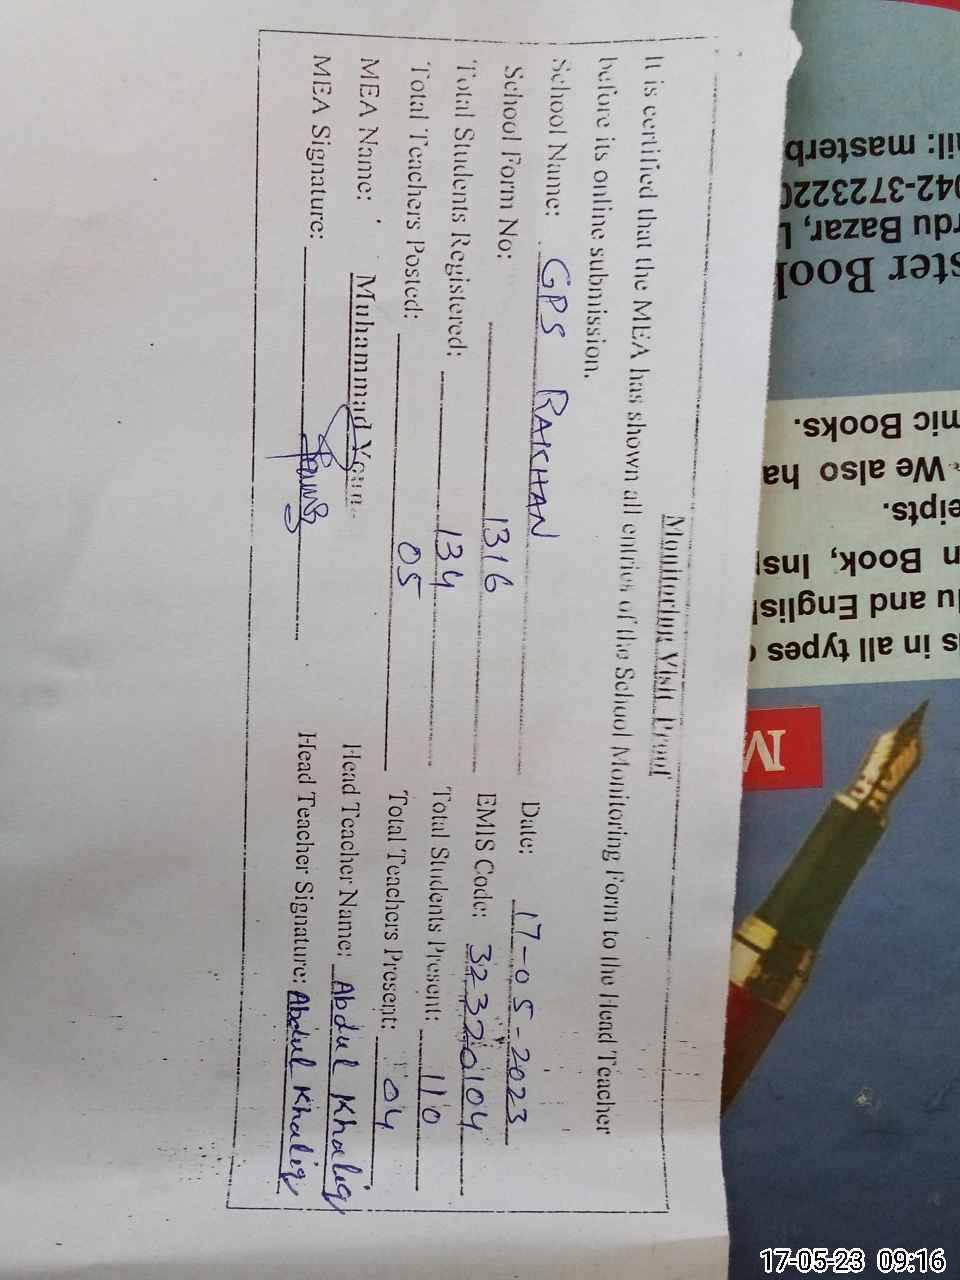 Monitoring Visit Proof
It is certified that the MEA has shown all entries of the School Monitoring Form to the Head Teacher
before its online submission.
School Name: GPS RAKHAN Date: 17-05-2023
School Form No: 1316 EMIS Code: 32320104
Total Students Registered: 134 Total Students Present: 110
Total Teachers Posted: 05 Total Teachers Present: 04
MEA Name: Muhammad Head Teacher Name: Abdul Khaliq
MEA Signature: Head Teacher Signature: Abdul Khaliq
M
s in all types
lu and English
n Book, Insp
eipts.
We also ha
mic Books.
ster Book
rdu Bazar, L
042-3723220
ail: masterb
17-05-23 09:16